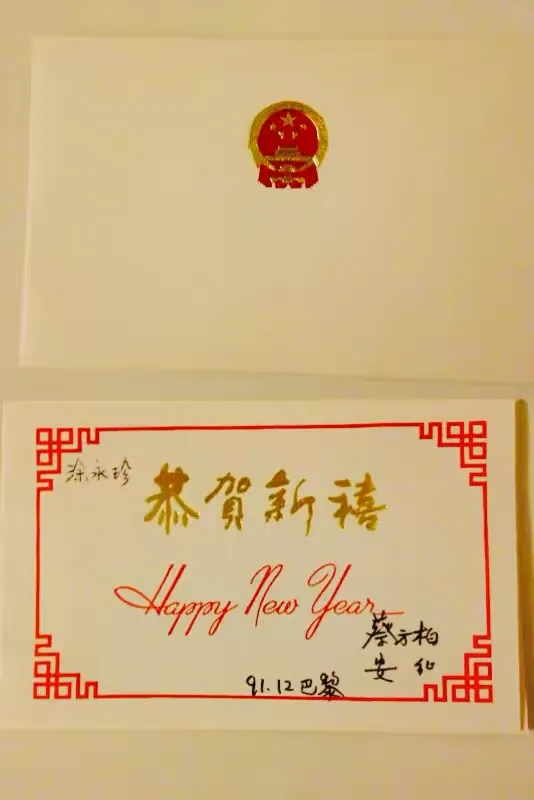 涂永珍
恭贺新禧
Happy New Year
蔡方柏
安
91.12 巴黎